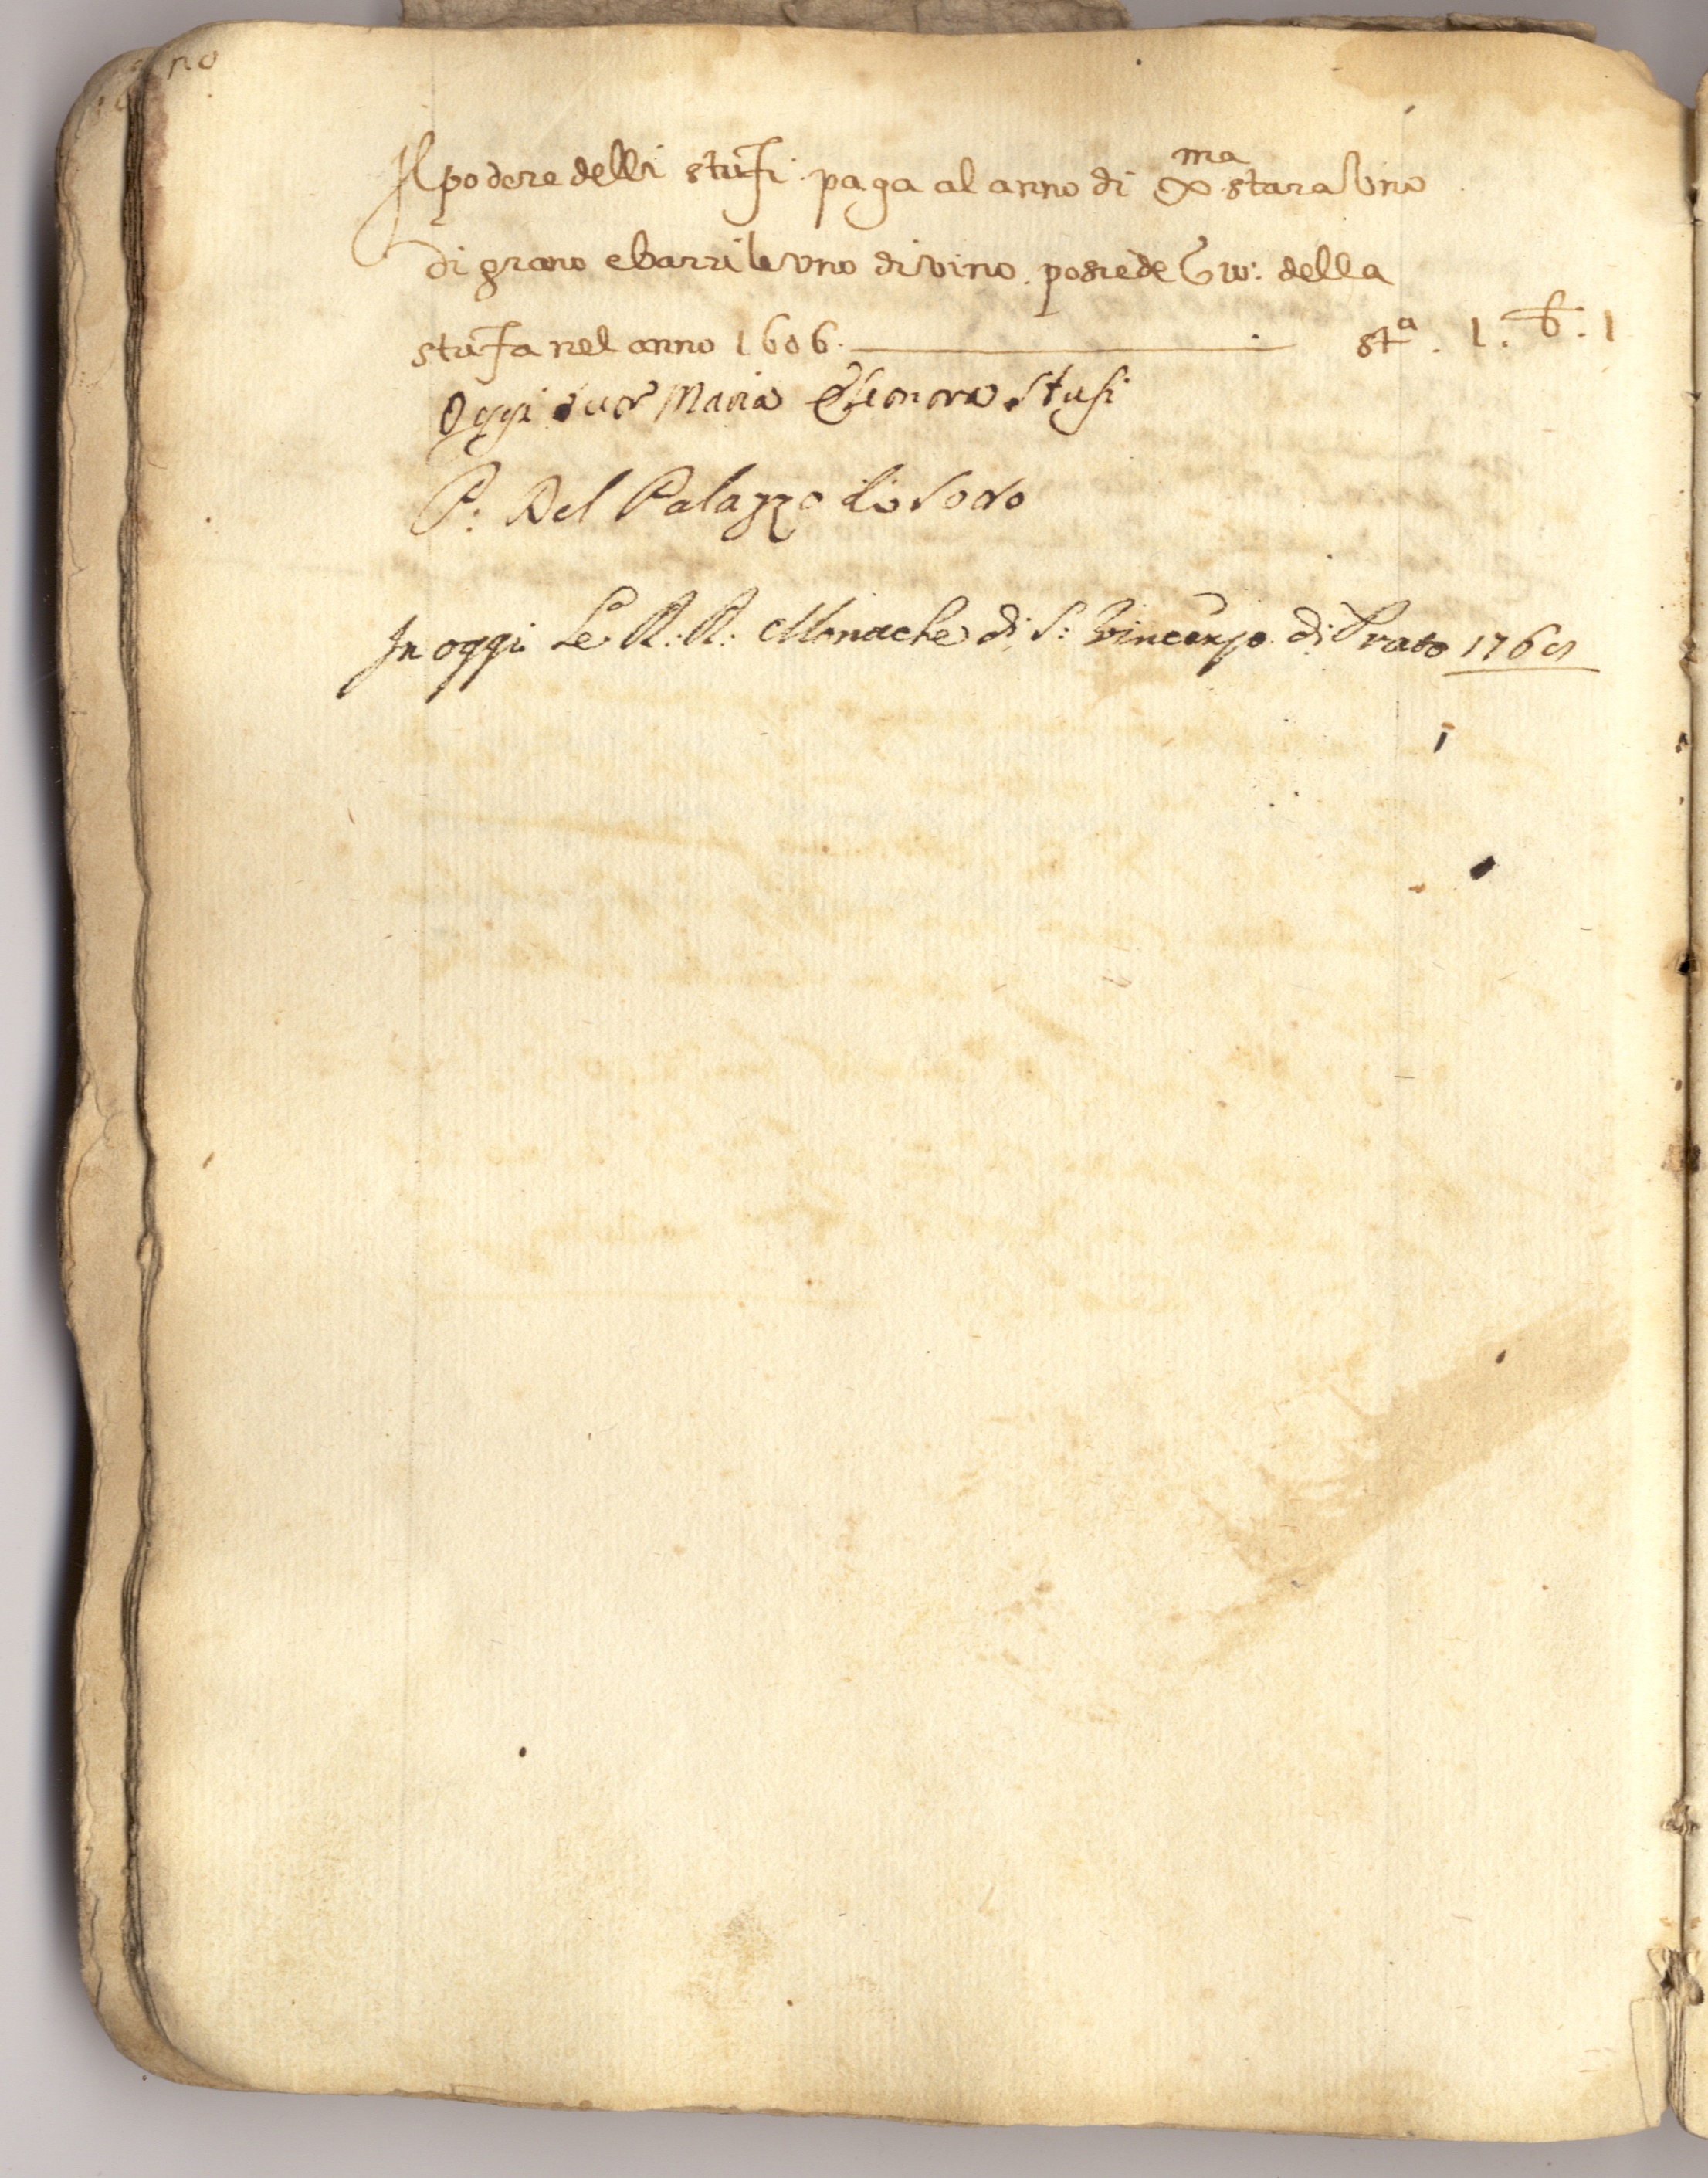 no
Il podere delli stufi paga al anno di Xma stara uno
di grano e barrile uno di vino. posiede della
stufa nel anno 1606. sta. 1. b. 1
Oggi Suor Maria Eleonora Stufi
P: Del Palazzo di Sodo
In oggi Le R:R: Monache di S: Vincenzo di Prato